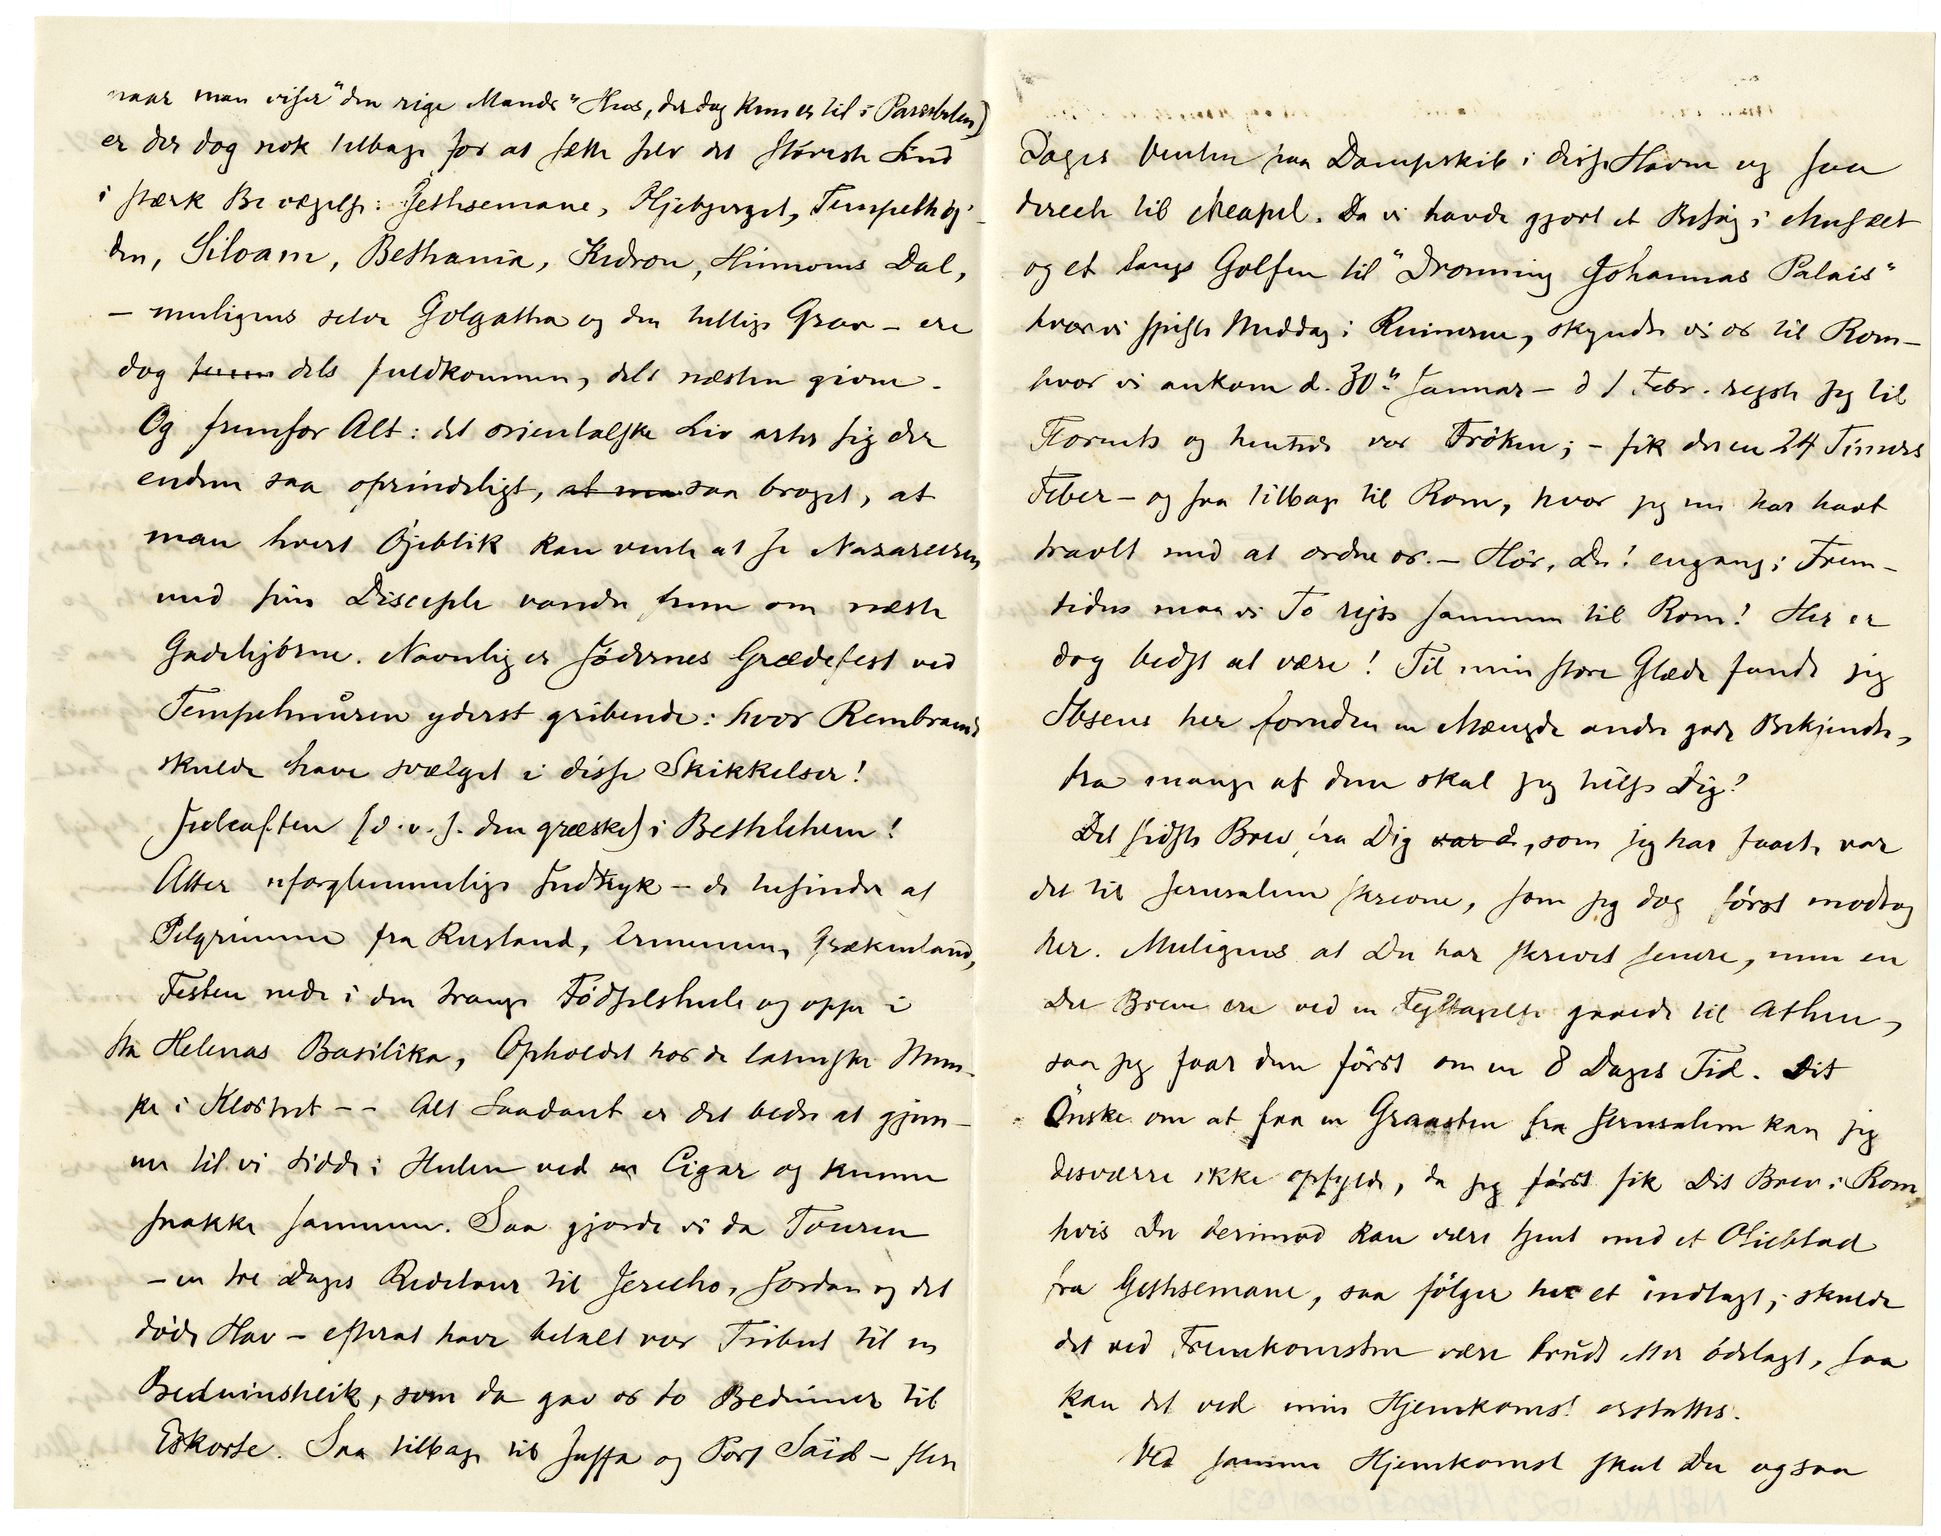 naar man viser "den rige Mands" Hus, der dog kun er til i Parabelen)
er der dog nok tilbage for at sætte selv det støveste Sind
i stærk Bevægelse: Gethsemane, Oljebjerget, Tempelhøj-
den, Siloam, Bethania, Kidron, Hinnoms Dal,
– muligens selve Golgatha og den hellige Grav – ere
dog dels fuldkommen, dels næsten givne.
Og fremfor Alt: det orientalske Liv arter sig der
endnu saa oprindeligt, saa broget, at
man hvert Øjeblik kan vente at se Nazaræeren
med sine Disciple vandre frem om næste
Gadehjørne. Navnlig er Jødernes Grædefest ved
Tempelmuren yderst gribende: hvor Rembrandt
skulde have svælget i disse Skikkelser!
Juleaften (d.v.s. den græske) i Bethlehem!
Atter uforglemmelige Indtryk – de tusinder af
Pilgrimme fra Rusland, Armenien, Grækenland,
Festen nede i den trange Fødselshule og oppe i
Sta Helenas Basilika, Opholdet hos de latinske Mun-
ke i Klostret – – Alt Saadant er det bedre at gjem-
me til vi sidde i Hulen ved en Cigar og kunne
snakke sammen. Saa gjorde vi da Touren
– en tre Dages Ridetour til Jericho, Jordan og det
døde Hav – efterat have betalt vor Tribut til en
Beduinsheik, som da gav os to Beduiner til
Eskorte. Saa tilbage til Jaffa og Port Saïd – flere
Dages Venten paa Dampskib i disse Havne og saa
directe til Neapel. Da vi havde gjort et Besøg i Musæet
og et langs Golfen til "Dronning Johannas Palais"
hvor vi spiste Middag i Ruinerne, skyndte vi os til Rom –
hvor vi ankom d. 30te Januar – d 1 Febr. rejste jeg til
Florents og hentede vor Frøken; – fik der en 24 Timers
Feber – og saa tilbage til Rom, hvor jeg nu har havt
travlt med at ordne os. – Hør, Du! engang i Frem-
tiden maa vi To rejse sammen til Rom! Her er
dog bedst at være! Til min store Glæde fandt jeg
Ibsens her foruden en Mængde andre gode Bekjendte,
fra mange af dem skal jeg hilse Dig!
Det sidste Brev fra Dig var d, som jeg har faaet, var
det til Jerusalem skrevne, som jeg dog først modtog
her. Muligens at Du har skrevet senere, men en
Del Breve ere ved en Fejltagelse gaaede til Athen,
saa jeg faar dem først om en 8 Dages Tid. Dit
Ønske om at faa en Graasten fra Jerusalem kan jeg
desværre ikke opfylde, da jeg først fik Dit Brev i Rom
hvis Du derimod kan være tjent med et Olieblad
fra Gethsemane, saa følger her et indlagt; skulde
det ved Fremkomsten være brudt eller ødelagt, saa
kan det ved min Hjemkomst erstattes.
Ved samme Hjemkomst skal Du ogsaa